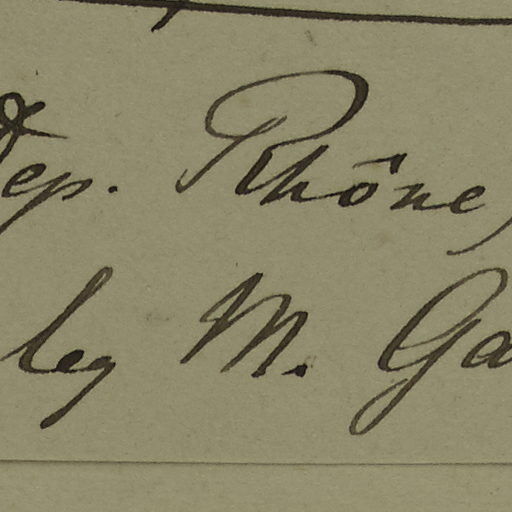 Dep. Rhône,
leg M. Ga